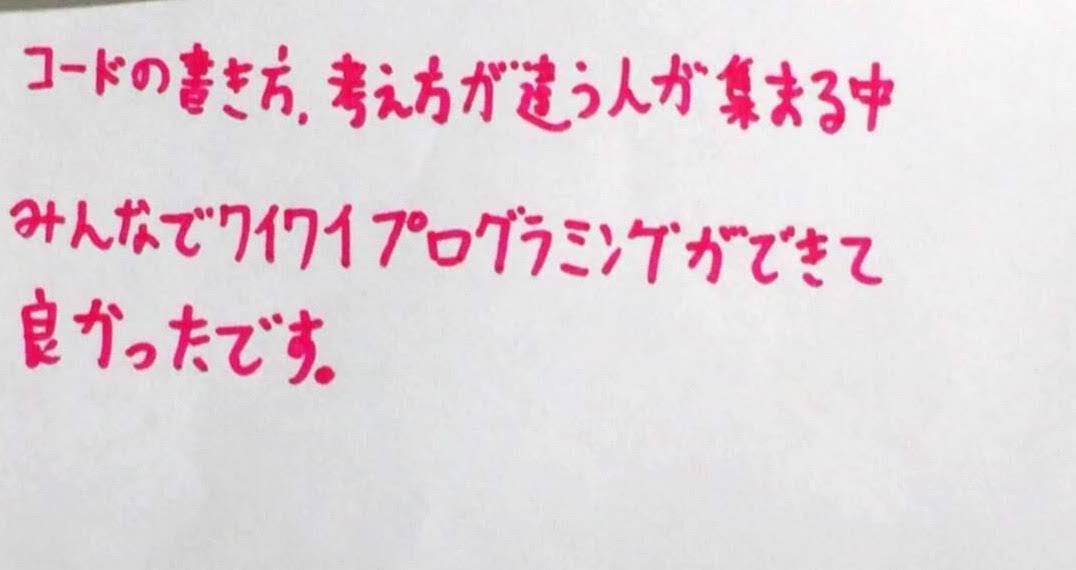 コードの書き方,考え方が違う人が集まる中
みんなでワイワイプログラミングができて
良かったです。